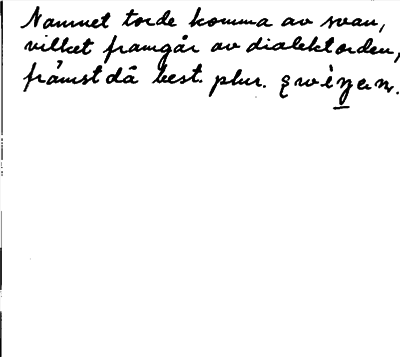 Namnet torde komma av svan,
vilket framgår av dialektorden,
främst då best. plur.